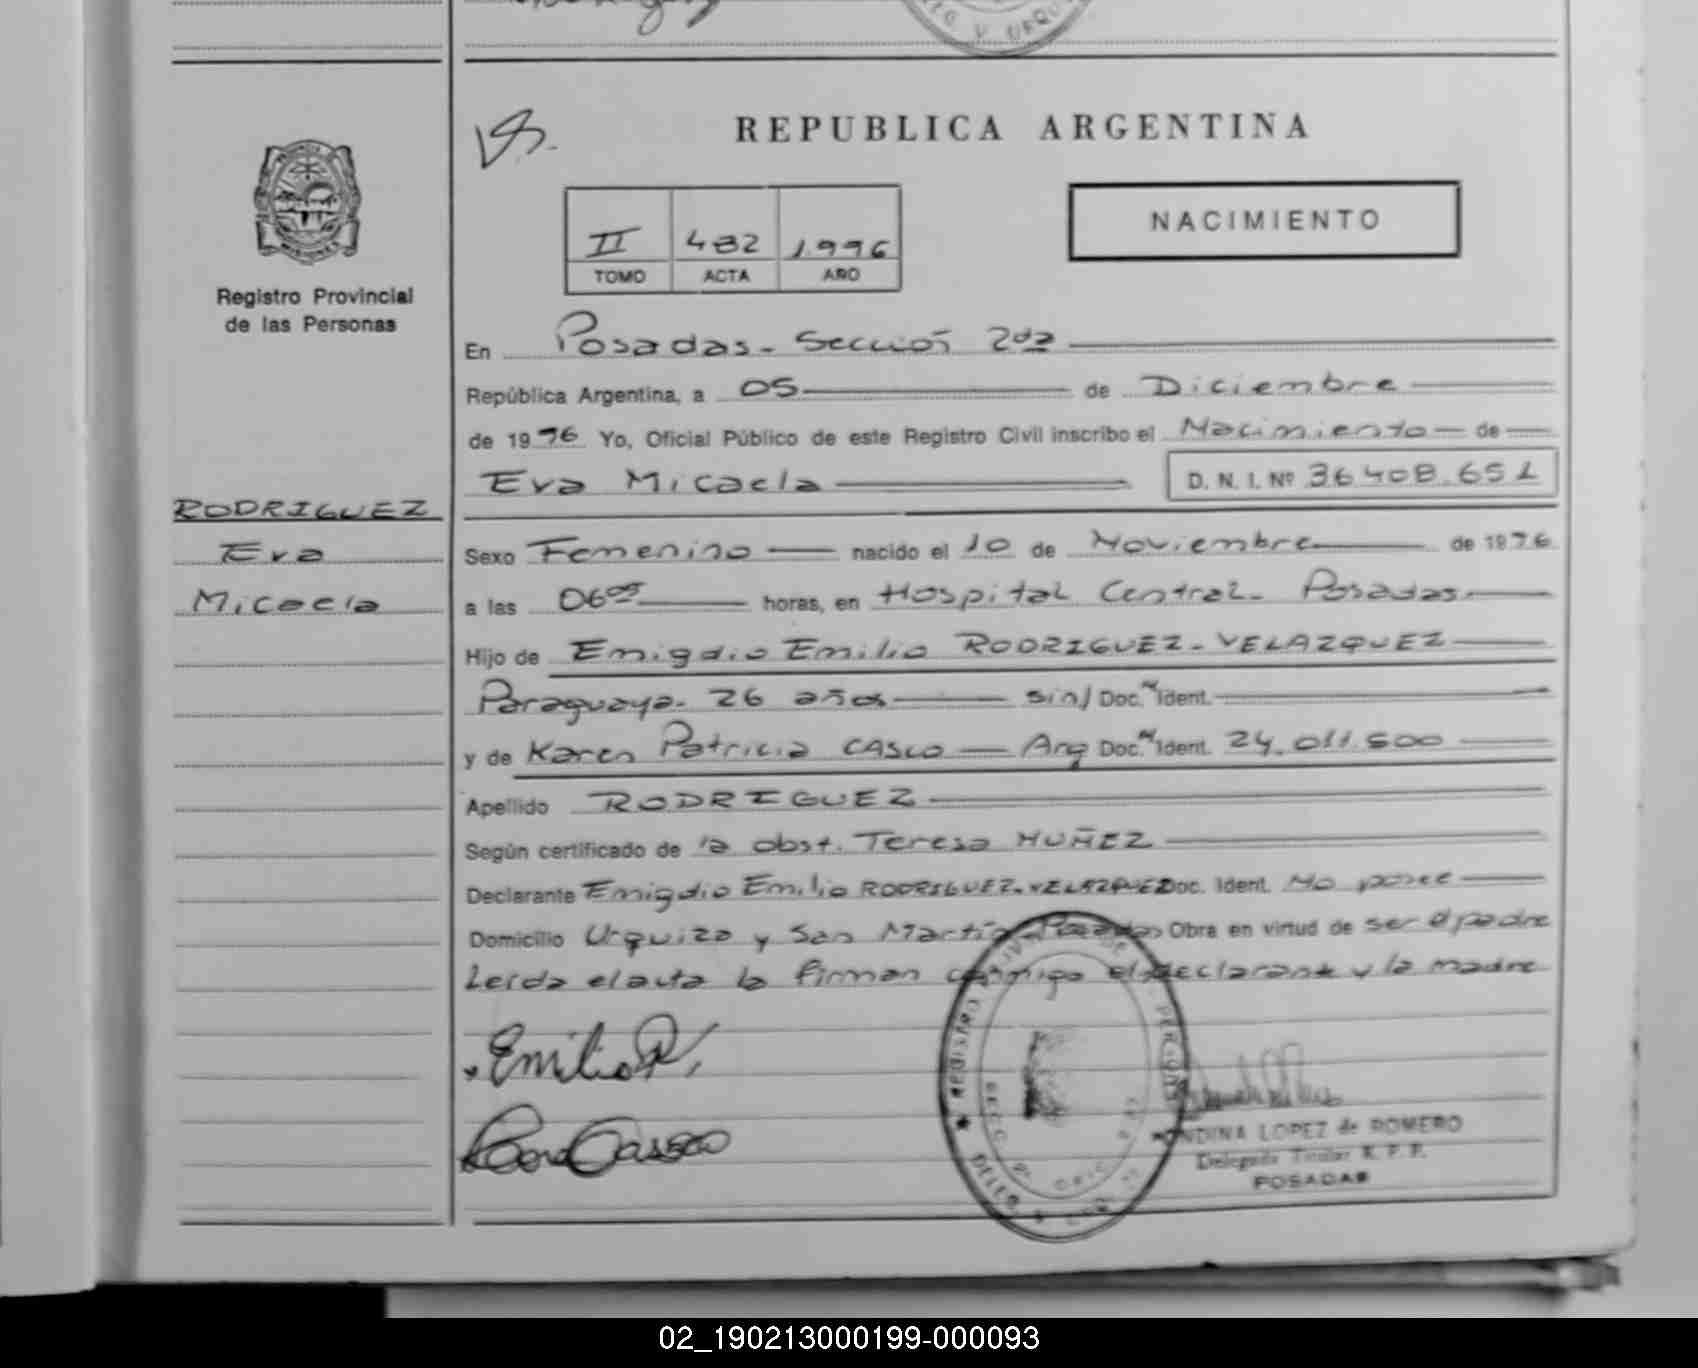 REPUBLICA ARGENTINA
Registro Provincial
de las Personas
II 482 1.996
TOMO ACTA AÑO
NACIMIENTO
En Posadas - Sección 2da
República Argentina, a 05 de Diciembre
de 1996 Yo, Oficial Público de este Registro Civil inscribo el Nacimiento de
Eva Micaela D. N. I. Nº 36408.651
RODRIGUEZ
Eva
Micaela
Sexo Femenino nacido el 10 de Noviembre de 1996
a las 06 horas, en Hospital Central - Posadas
Hijo de Emigdio Emilio RODRIGUEZ - VELAZQUEZ
Paraguaya - 26 años sin/ Doc. Ident.
y de Karen Patricia CASCO Arg Doc. Ident. 24.011.500
Apellido RODRIGUEZ
Según certificado de la obst. Teresa MUÑEZ
Declarante Emigdio Emilio RODRIGUEZ - VELAZQUEZ Doc. Ident. No posee
Domicilio Urquiza y San Martín Posadas Obra en virtud de ser el padre
Leída el acta la firman conmigo el declarante y la madre
Emilio R
Casco
REGISTRO
LOPEZ de ROMERO
Delegada Titular R. P. P.
POSADAS
02_190213000199-000093